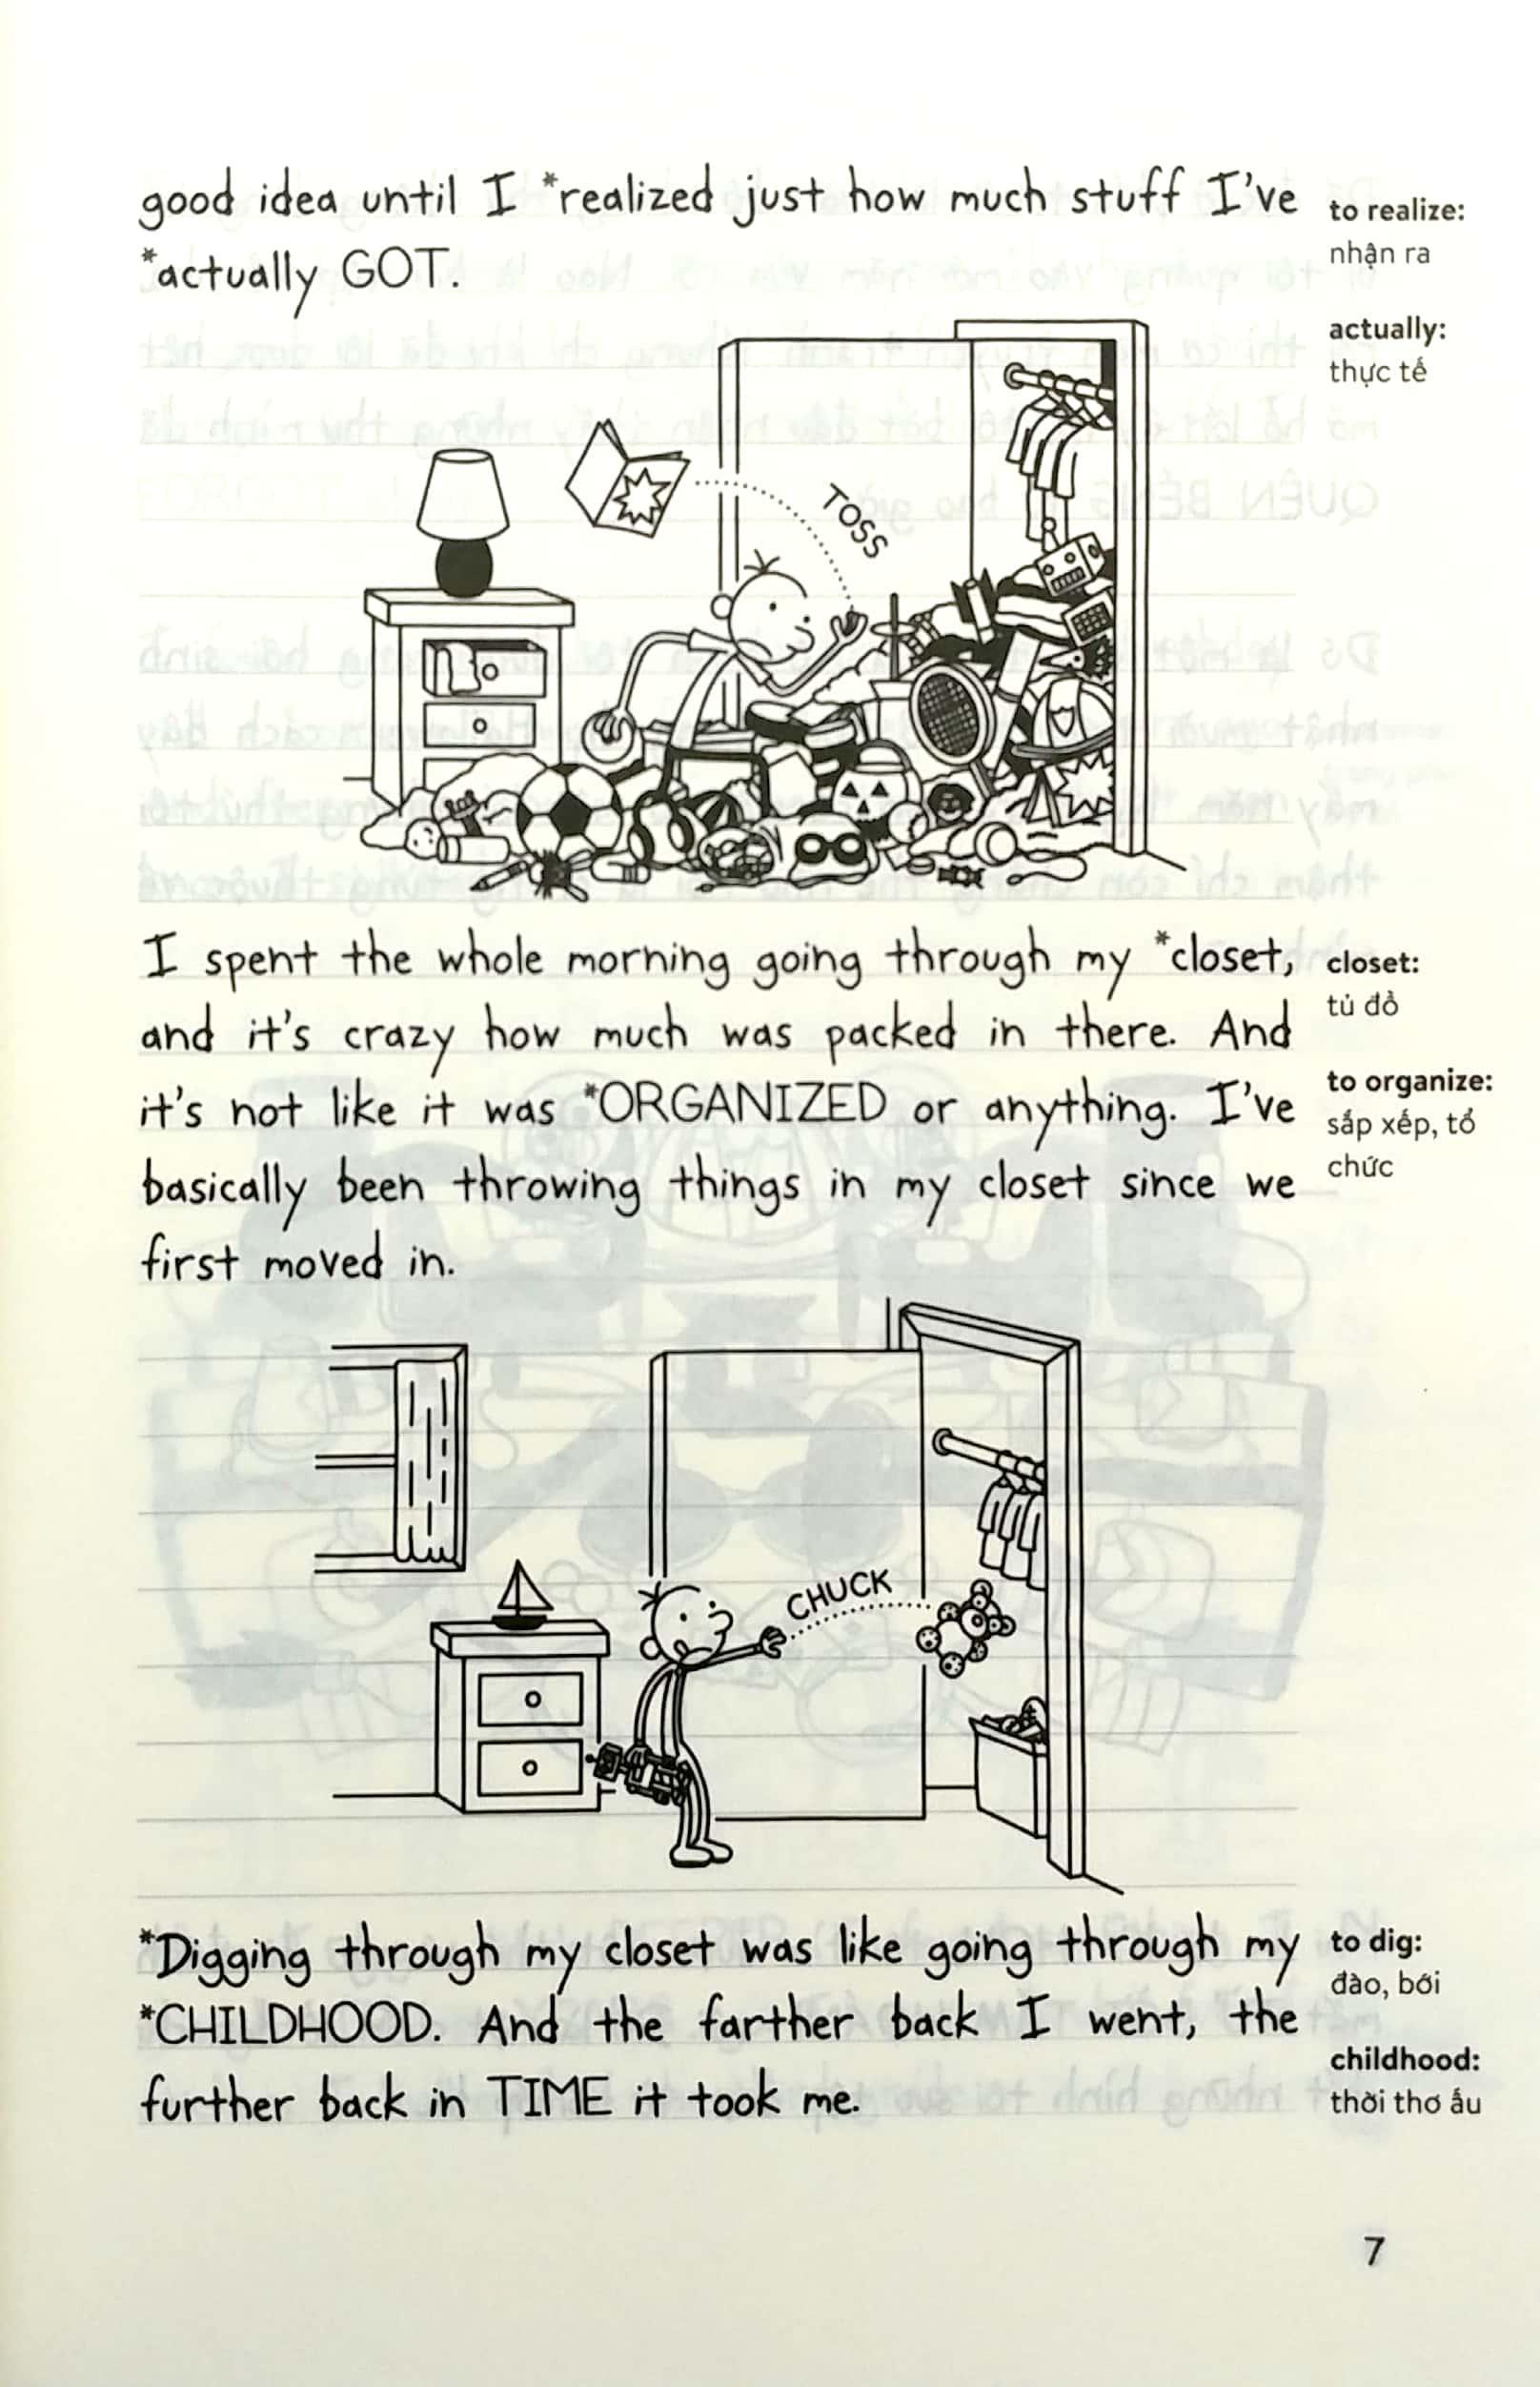 good idea until I *realized just how much stuff I've
*actually GOT.
to realize:
nhận ra
actually:
thực tế
TOSS
I spent the whole morning going through my *closet,
and it's crazy how much was packed in there. And
it's not like it was *ORGANIZED or anything. I've
basically been throwing things in my closet since we
first moved in.
closet:
tủ đồ
to organize:
sắp xếp, tổ
chức
CHUCK
*Digging through my closet was like going through my
*CHILDHOOD. And the farther back I went, the
further back in TIME it took me.
to dig:
đào, bới
childhood:
thời thơ ấu
7